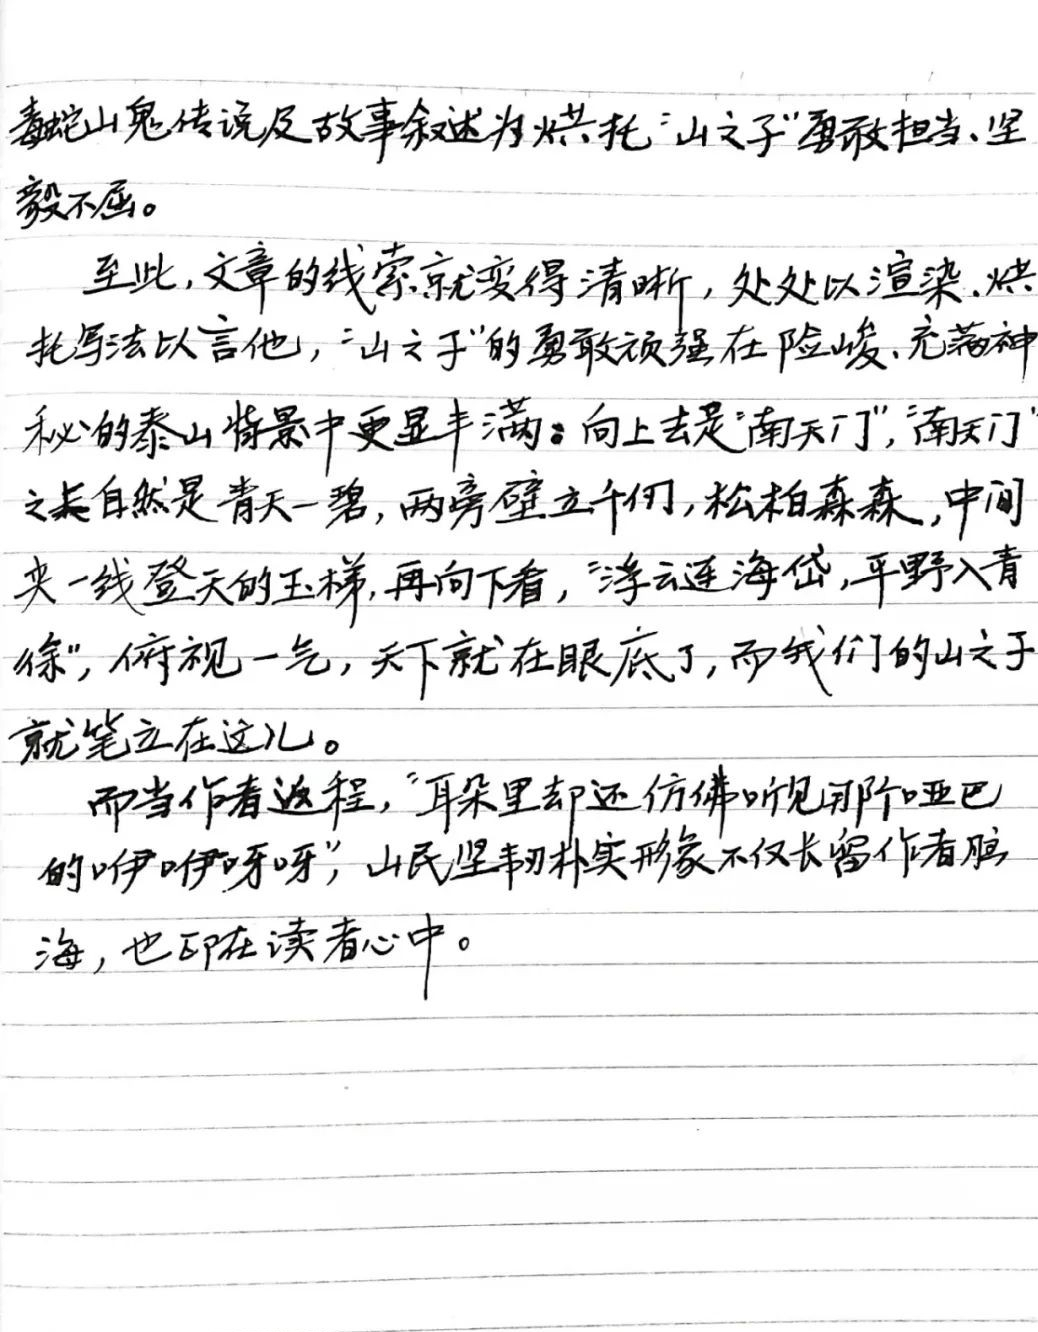 毒蛇山鬼传说及故事叙述为烘托“山之子”勇敢担当、坚
毅不屈。
至此，文章的线索就变得清晰，处处以渲染、烘
托写法以言他，“山之子”的勇敢顽强在险峻、充满神
秘的泰山背景中更显丰满：向上去是“南天门”，“南天门”
之上自然是青天一碧，两旁壁立千仞，松柏森森，中间
夹一线登天的玉梯，再向下看，“浮云连海岱，平野入青
徐”，俯视一气，天下就在眼底了，而我们的山之子
就笔立在这儿。
而当作者返程，“耳朵里却还仿佛听见那个哑巴
的咿咿呀呀”，山民坚韧朴实形象不仅长留作者脑
海，也印在读者心中。